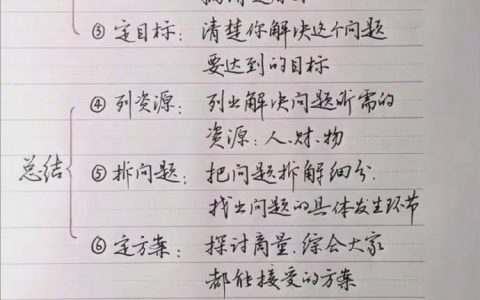 ③ 定目标: 清楚你解决这个问题
要达到的目标
④ 列资源: 列出解决问题所需的
资源:人、财、物
总结
⑤ 拆问题: 把问题拆解细分.
找出问题的具体发生环节
⑥ 定方案: 探讨商量.综合大家
都能接受的方案